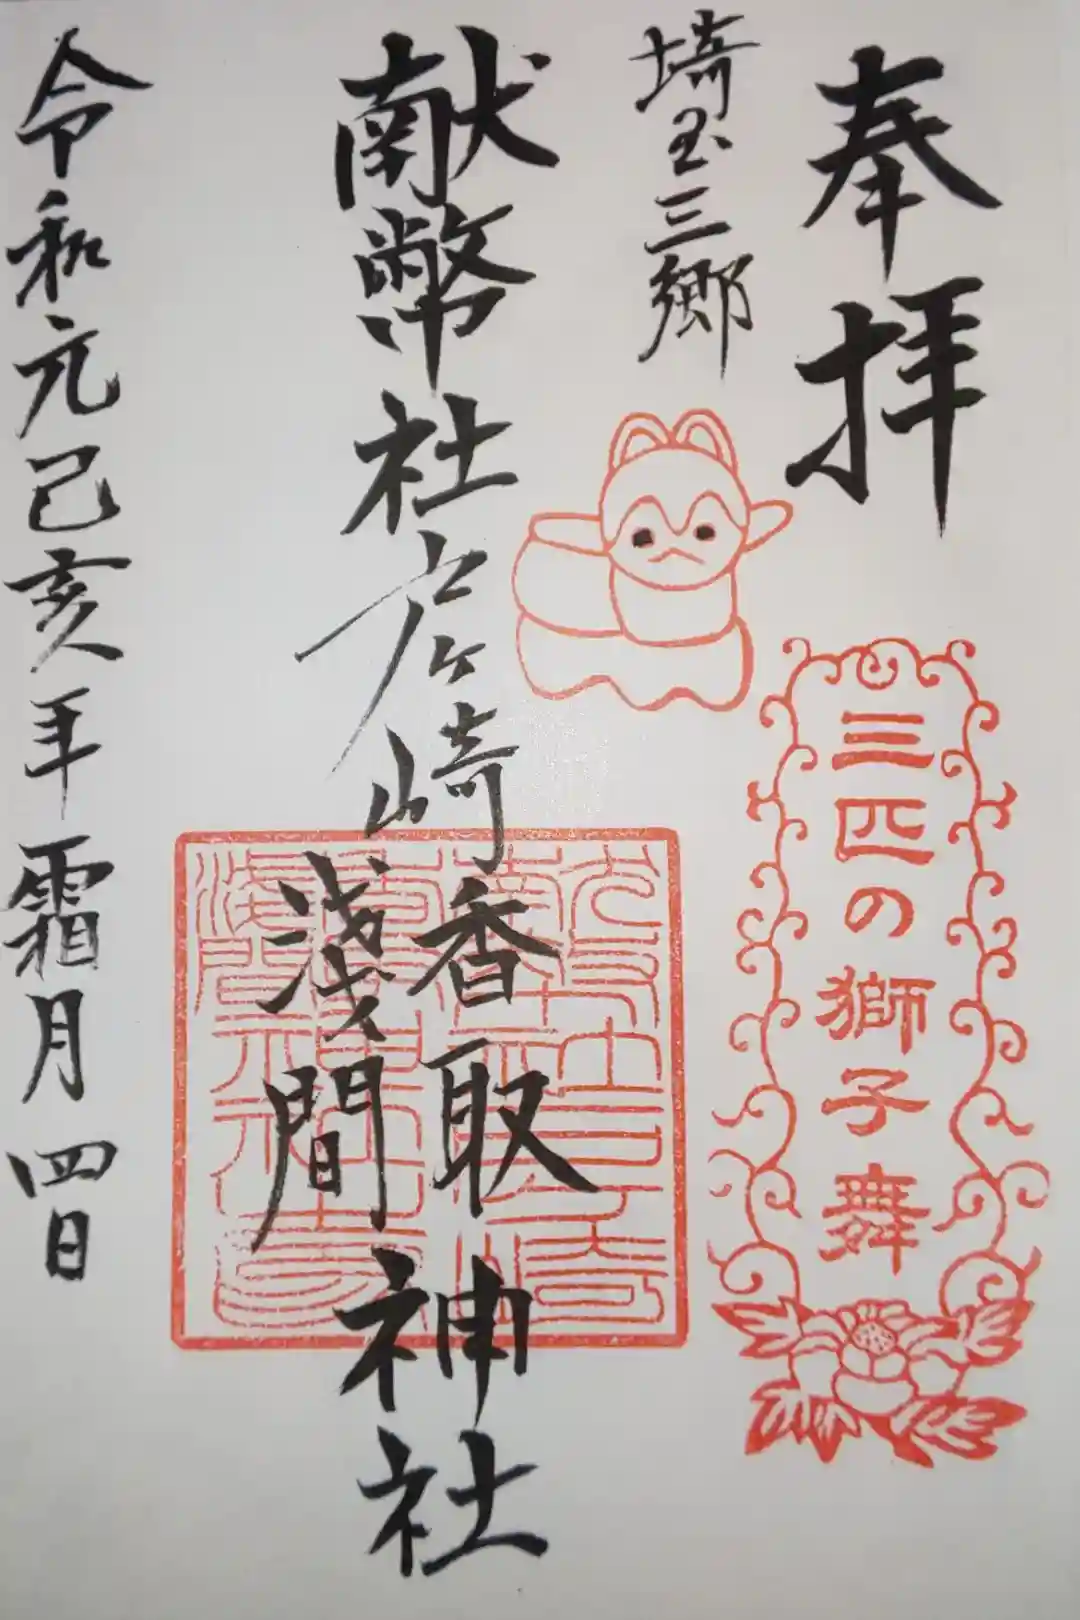 奉拝
埼玉三郷
三匹の獅子舞
献幣社戸ヶ崎香取
浅間
神社
令和元己亥年霜月四日